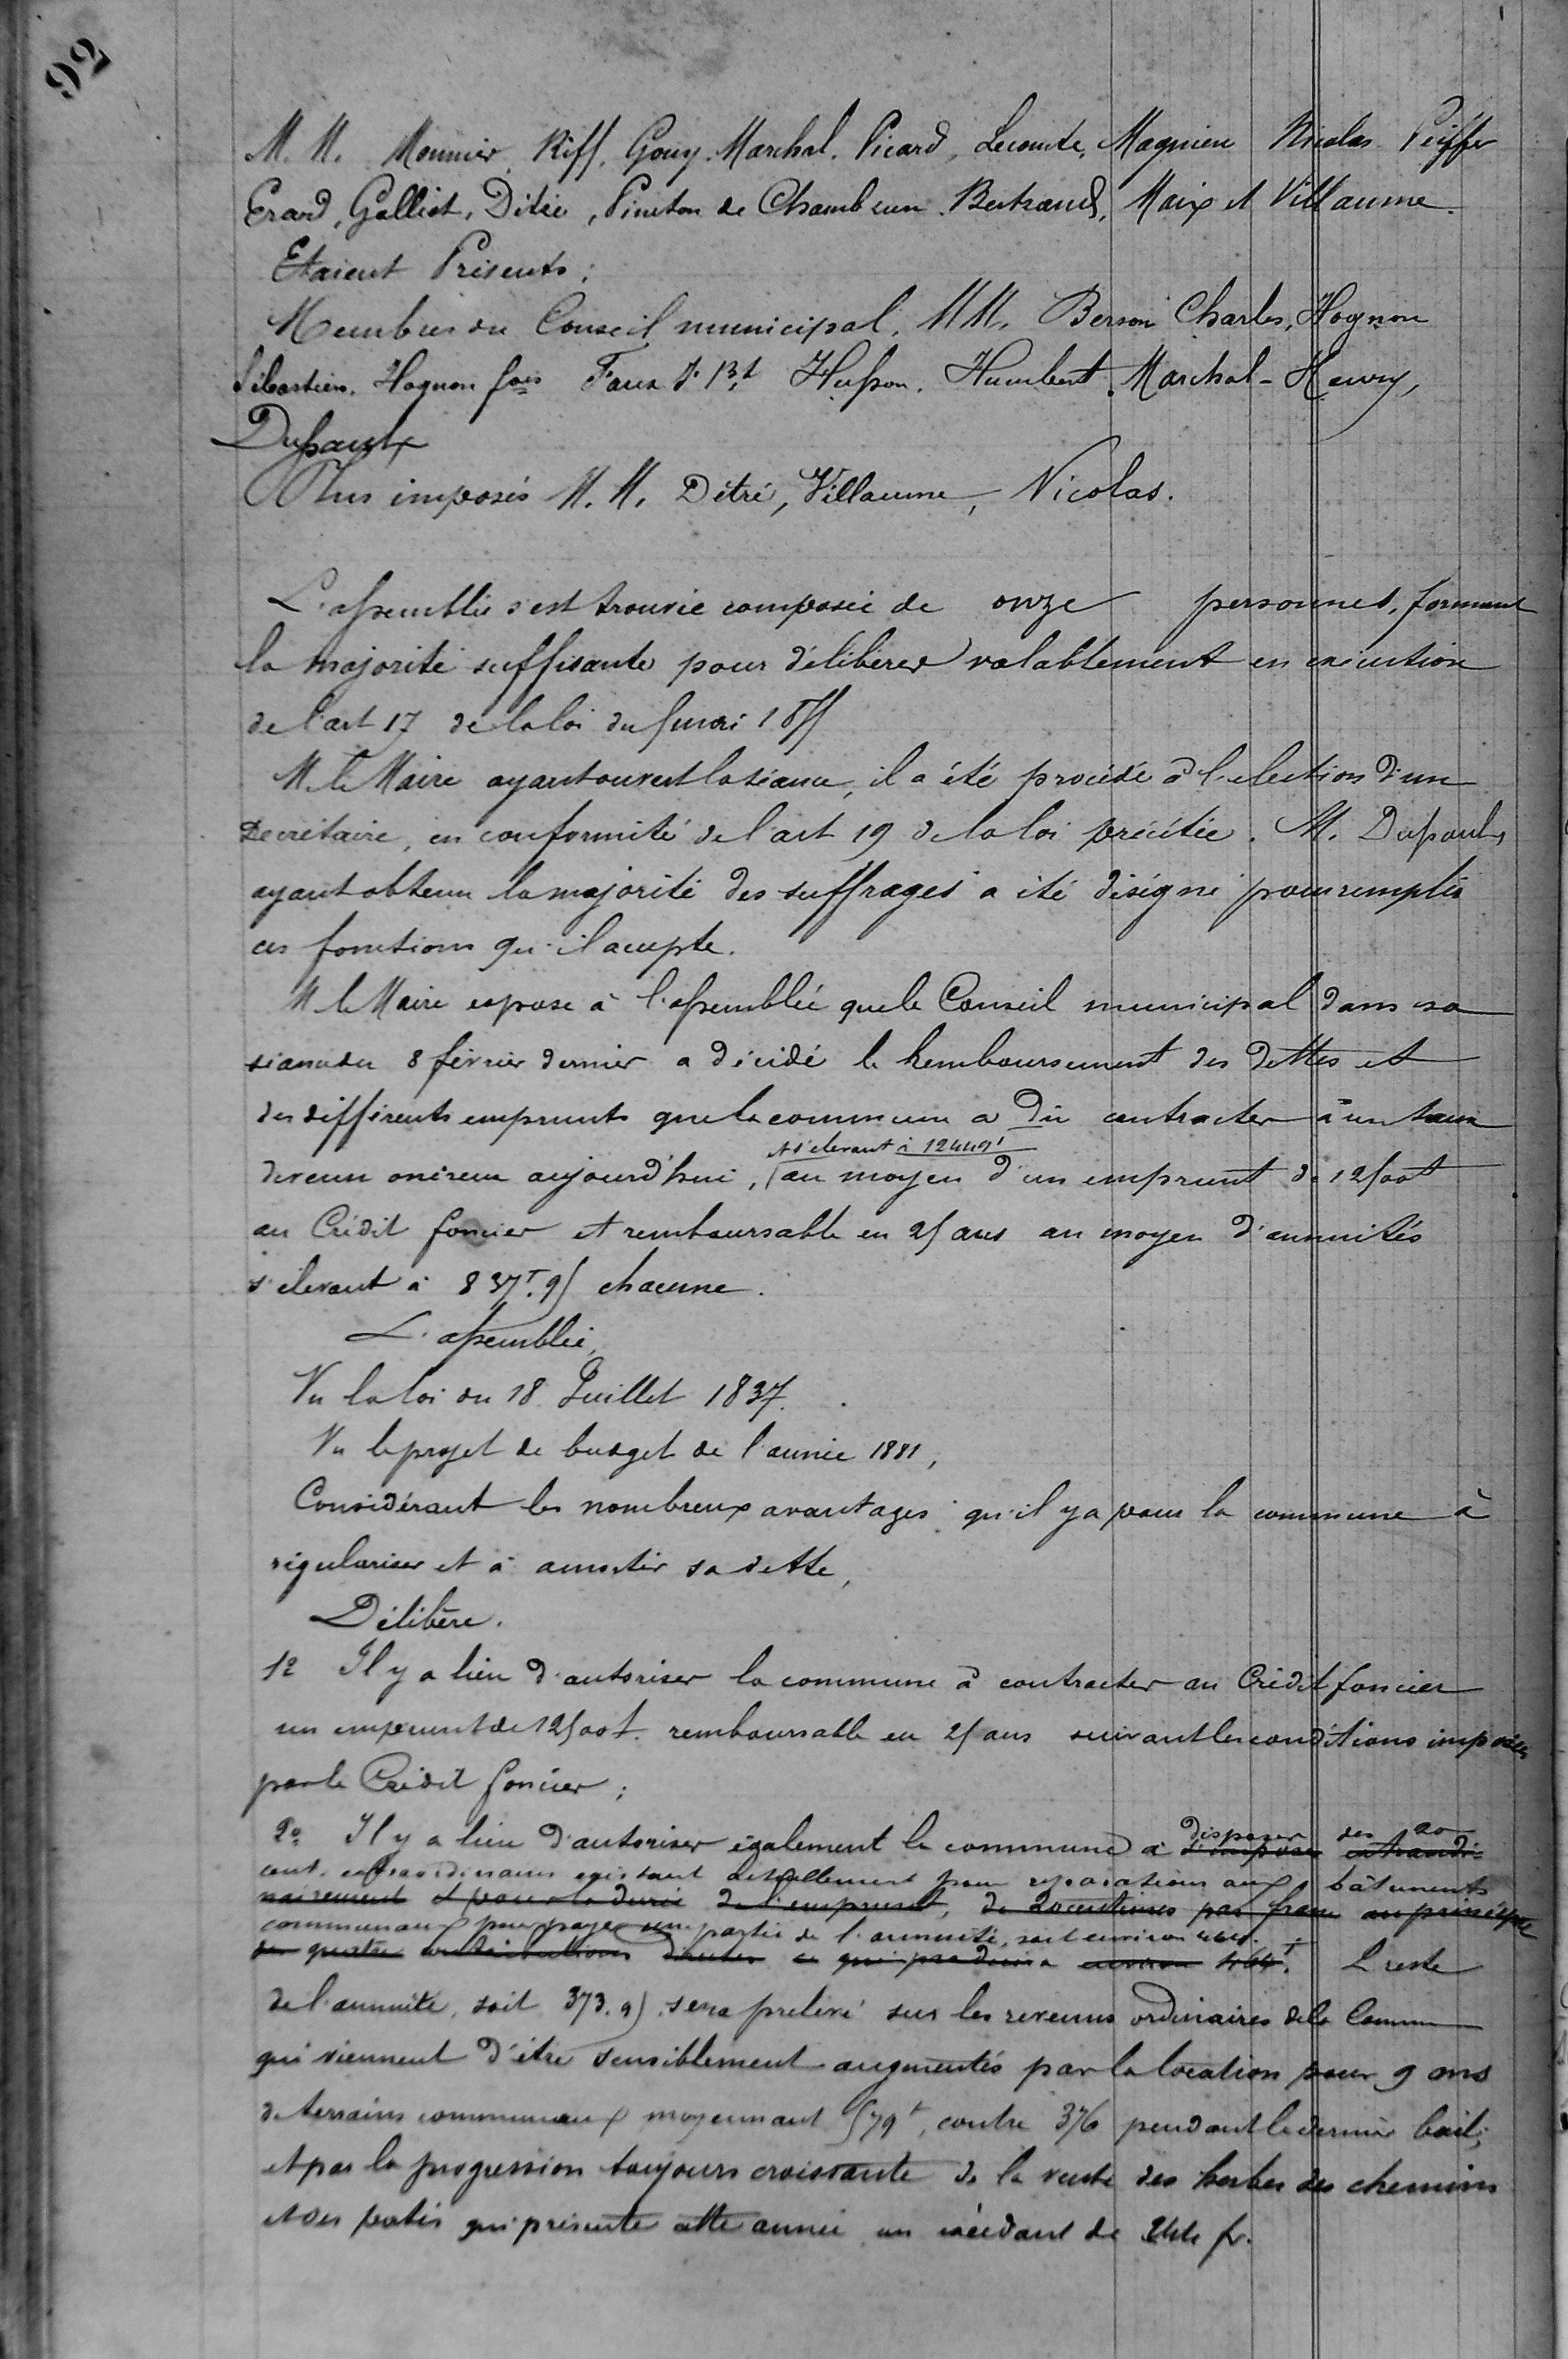 92
M. M. Mounier, Riff, Gouy, Marchal, Picard, Lecomte, Magnien Nicolas Peiffer
Erard, Galliot, Ditré, Pineton de Chambrun, Bertrand, Maix et Villaume.
Etaient Présents :
Membres du Conseil municipal, MM. Berson Charles, Hognon
Sébastien, Hognon fois Faux J. Bt Husson, Humbert, Marchal-Henry,
Dupaulx
Plus imposés M. M. Détré, Villaume, Nicolas.
L'assemblée s'est trouvée composée de onze personnes, formant
la majorité suffisante pour délibérer valablement en exécution
de l'art 17 de la loi du 5 mai 1855
M. le Maire ayant ouvert la séance, il a été procédé à l'election d'un
Secrétaire, en conformité de l'art 19 de la loi précitée. M. Dupaulx
ayant obtenu la majorité des suffrages a été désigné pour remplir
ces fonctions qu'il accepte.
M le Maire expose à l'assemblée que le Conseil municipal dans sa
séance du 8 février dernier a décidé le remboursement des dettes et
des différents emprunts que la commune a dû contracter à un taux
s'elevant à 12449f
devenu onéreux aujourd'hui, au moyen d'un emprunt de 12500f
au Crédit foncier et remboursable en 25 ans au moyen d'annuités
s'élevant à 837f.95 chacune.
L'assemblée,
Vu la loi du 18 Juillet 1837.
Vu le projet de budget de l'année 1881,
Considérant les nombreux avantages qu'il y a pour la commune à
régulariser et à amortir sa dette,
Délibère.
1º Il y a lieu d'autoriser la commune à contracter au Crédit foncier
un emprunt de 12500f. remboursable en 25 ans suivant les conditions imposées
par le Crédit foncier ;
disposer des 20
2º Il y a lieu d'autoriser également la commune à s'imposer extraordi-
cent. extraordinaires existant actuellement pour réparations aux bâtiments
nairement et pour la durée de l'emprunt, de 20 centimes par franc au principal
communaux pour payer une partie de l'annuité, soit environ 464f.
des quatre contributions directes ce qui produira environ 464f. L reste
de l'annuité, soit 373.95, sera prélevé sur les revenus ordinaires de la Commune
qui viennent d'être sensiblement augmentés par la location pour 9 ans
de terrains communaux moyennant 579f, contre 376 pendant le dernier bail,
et par la progression toujours croissante de la vente des herbes des chemins
et des patis qui présente cette année un excédant de fr.